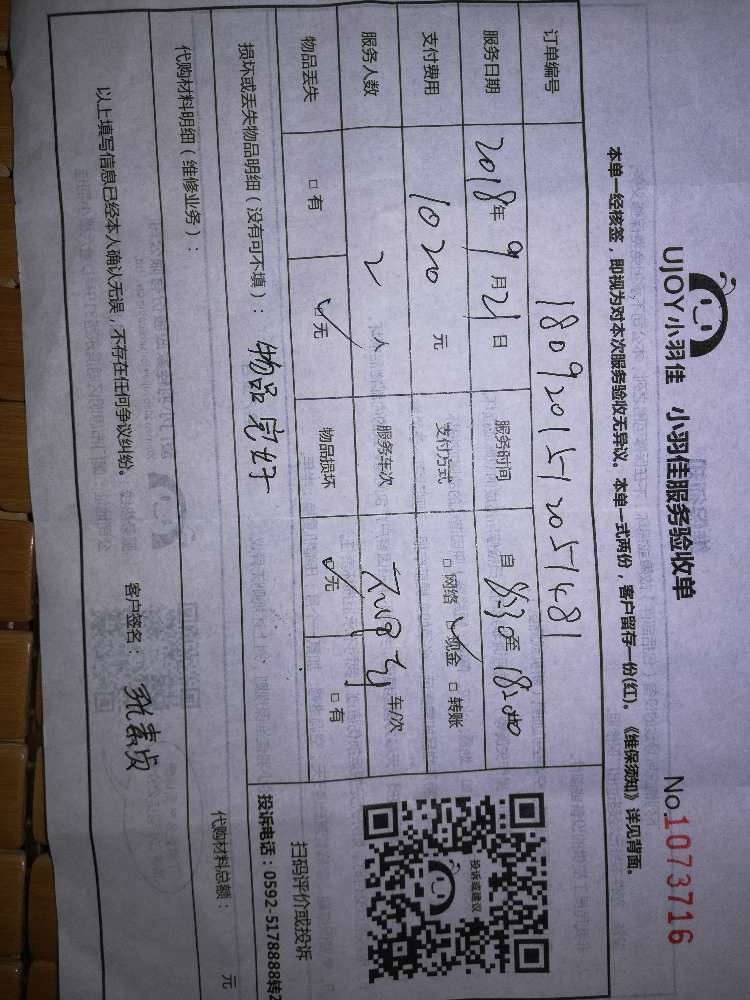 UJOY小羽佳 小羽佳服务验收单 No.1073716
本单一经核签，即视为对本次服务验收无异议。本单一式两份，客户留存一份(红)。《维保须知》详见背面。
订单编号 1809201512051481
服务日期 2018年9月21日 服务时间 自8:30至18:00
支付费用 1020元 支付方式 □网络 ☑现金 □转账
服务人数 2人 服务车次 车/次
物品丢失 □有 ☑无 物品损坏 ☑无 □有
损坏或丢失物品明细（没有可不填）： 物品完好
投诉或建议
扫码评价或投诉
投诉电话：0592-5178888转2
代购材料明细（维修业务）： 代购材料总额： 元
以上填写信息已经本人确认无误，不存在任何争议纠纷。 客户签名：